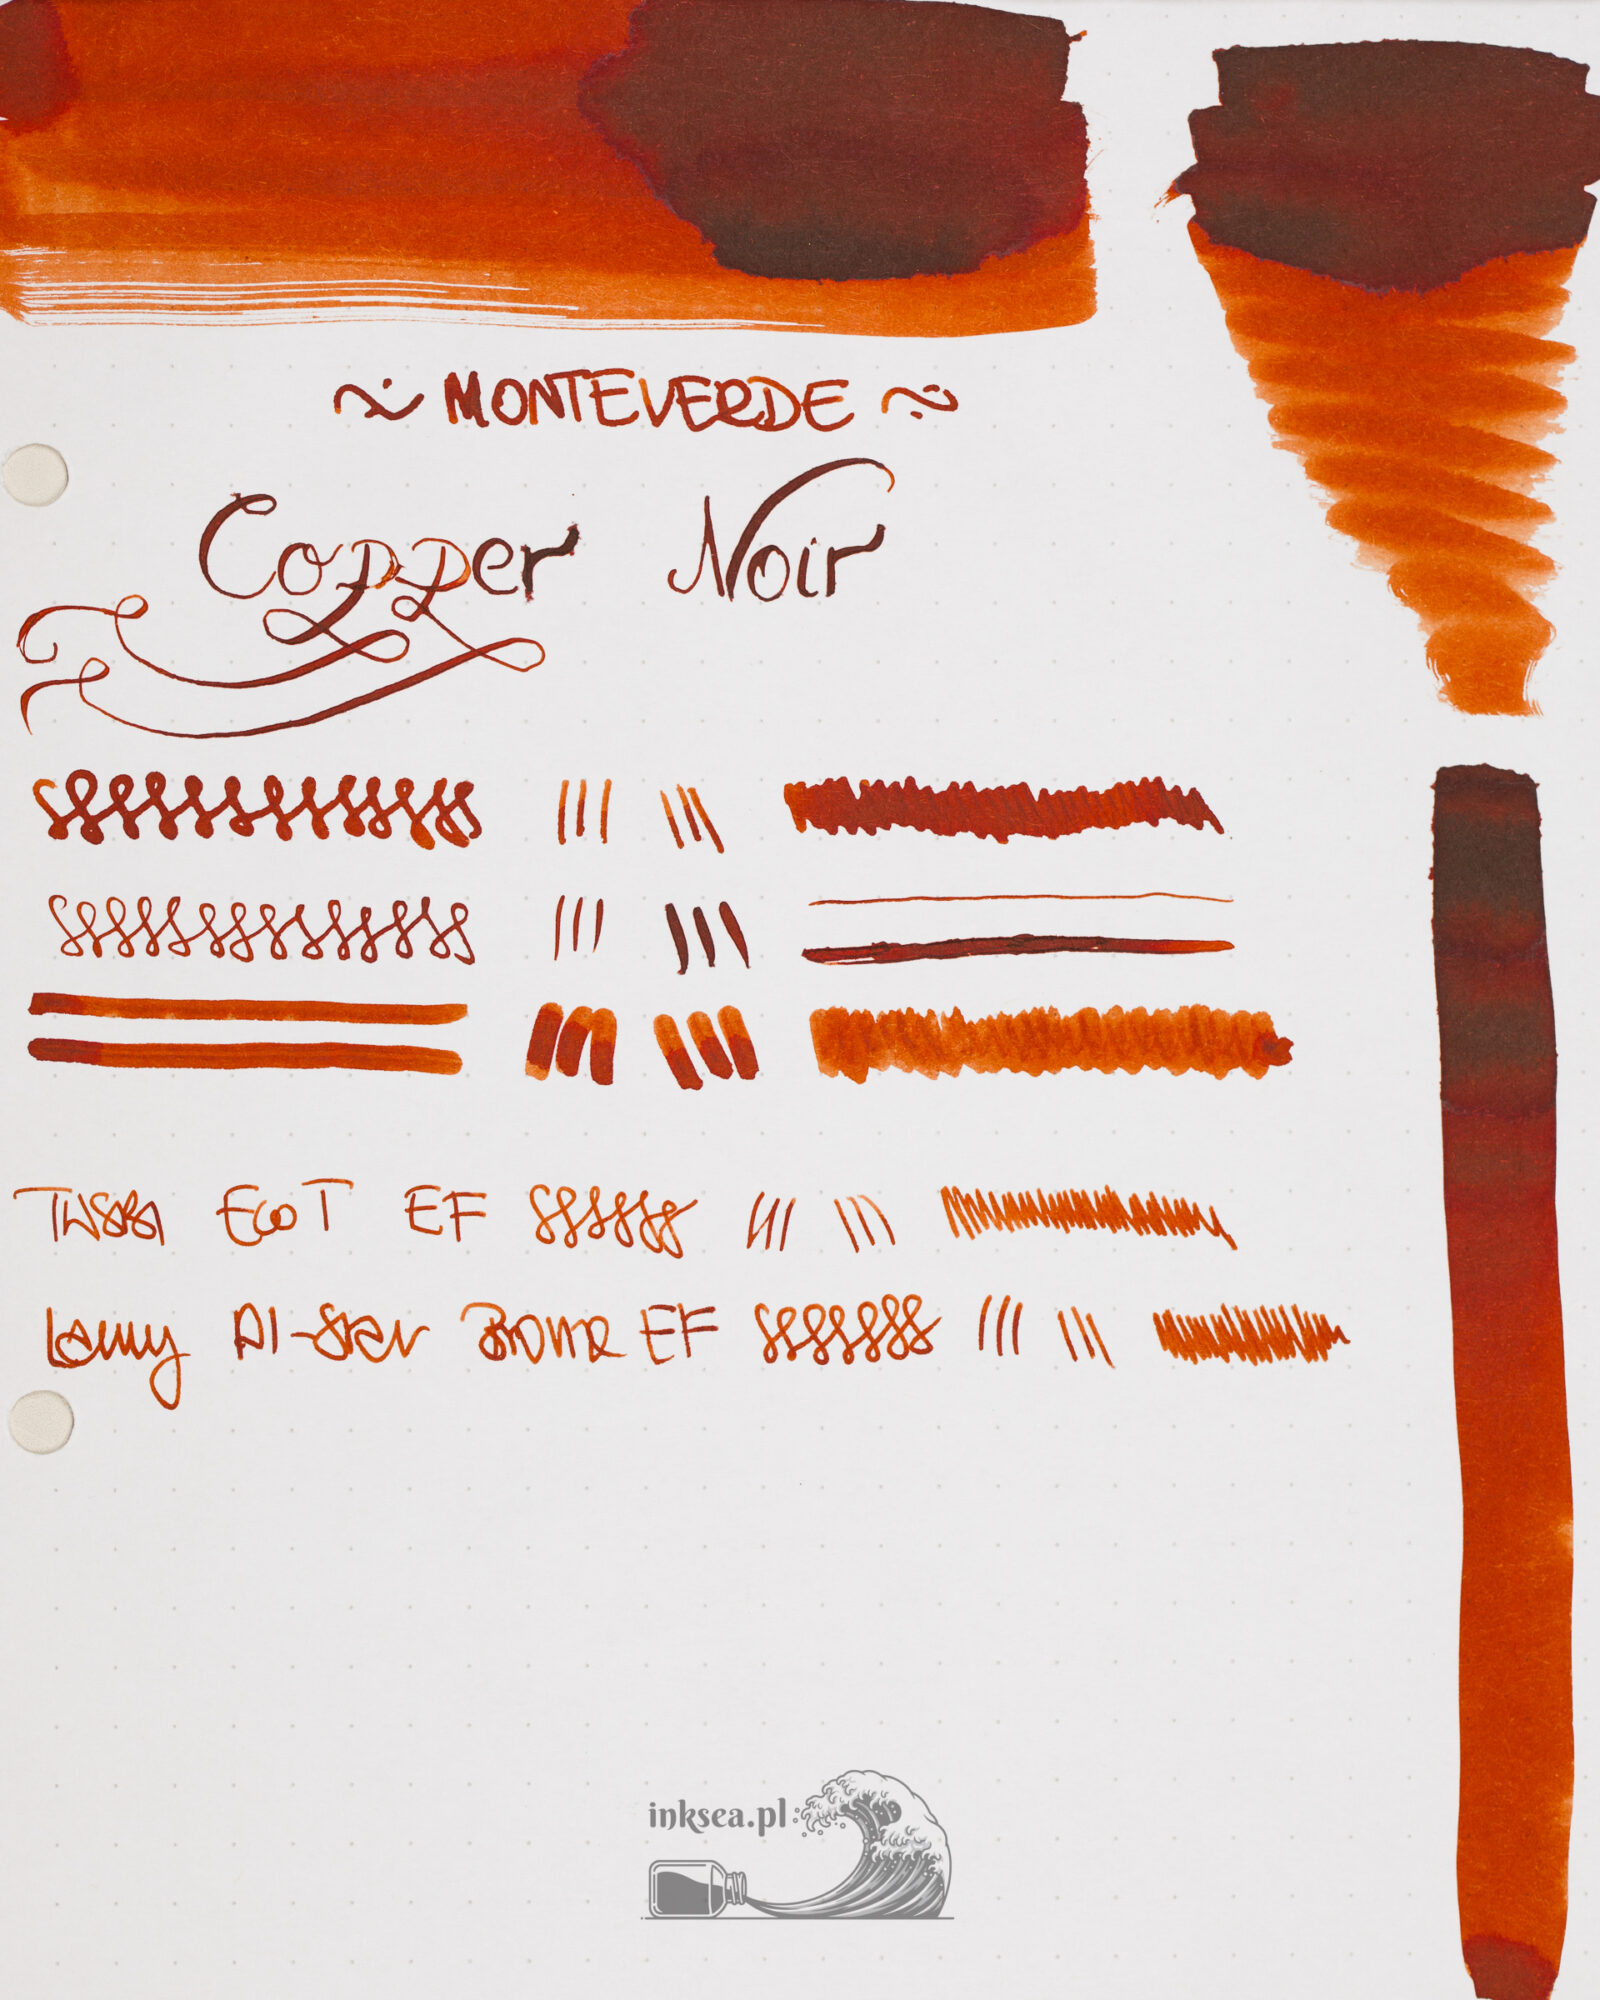 ~ MONTEVERDE ~
Copper Noir
TWSBI Eco T EF
Lamy Al-Star Bronze EF
inksea.pl